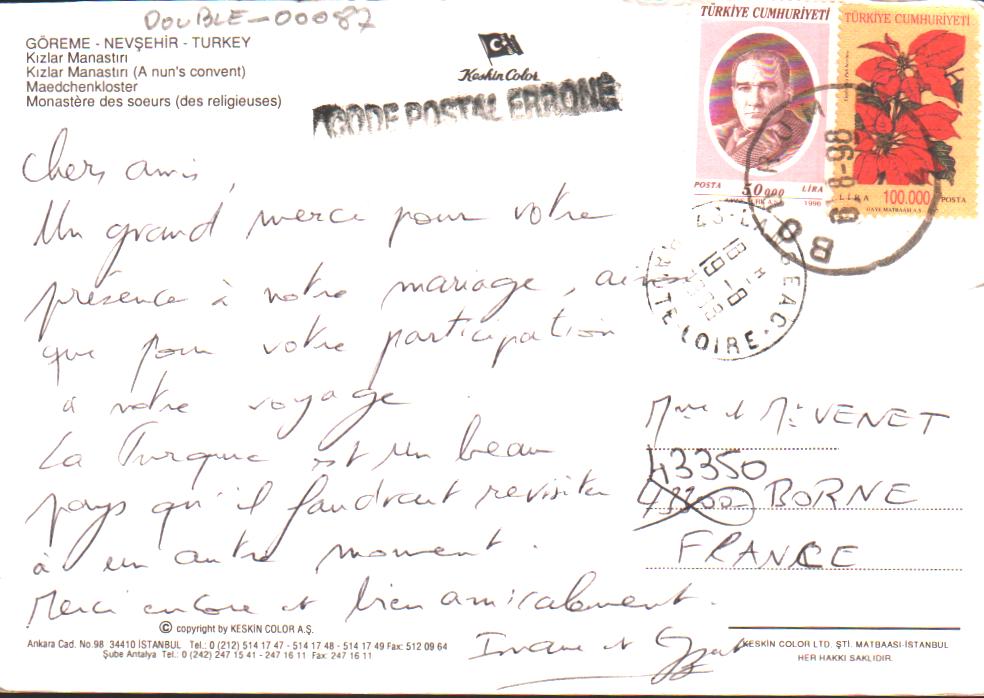 DOUBLE-00087
GÖREME - NEVŞEHİR - TURKEY
Kızlar Manastırı
Kızlar Manastırı (A nun's convent)
Maedchenkloster
Monastère des soeurs (des religieuses)
Keskin Color
CODE POSTAL ERRONÉ
TÜRKİYE CUMHURİYETİ
POSTA 50000 LİRA
1996
TÜRKİYE CUMHURİYETİ
LİRA 100.000 POSTA
18-98
43-LANGEAC
18 H
19-8
HAUTE-LOIRE
Chers amis,
Un grand merci pour votre
présence à notre mariage, ainsi
que pour votre participation
à notre voyage.
La Turquie est un beau
pays qu'il faudrait revisiter
à un autre moment.
Merci encore et bien amicalement.
Mme et Mr VENET
43350
BORNE
FRANCE
© copyright by KESKİN COLOR A.Ş.
Ankara Cad. No.98 34410 İSTANBUL Tel.: 0 (212) 514 17 47 - 514 17 48 - 514 17 49 Fax: 512 09 64
Şube Antalya Tel.: 0 (242) 247 15 41 - 247 16 11 Fax: 247 16 11
KESKİN COLOR LTD. ŞTİ. MATBAASI-İSTANBUL
HER HAKKI SAKLIDIR.